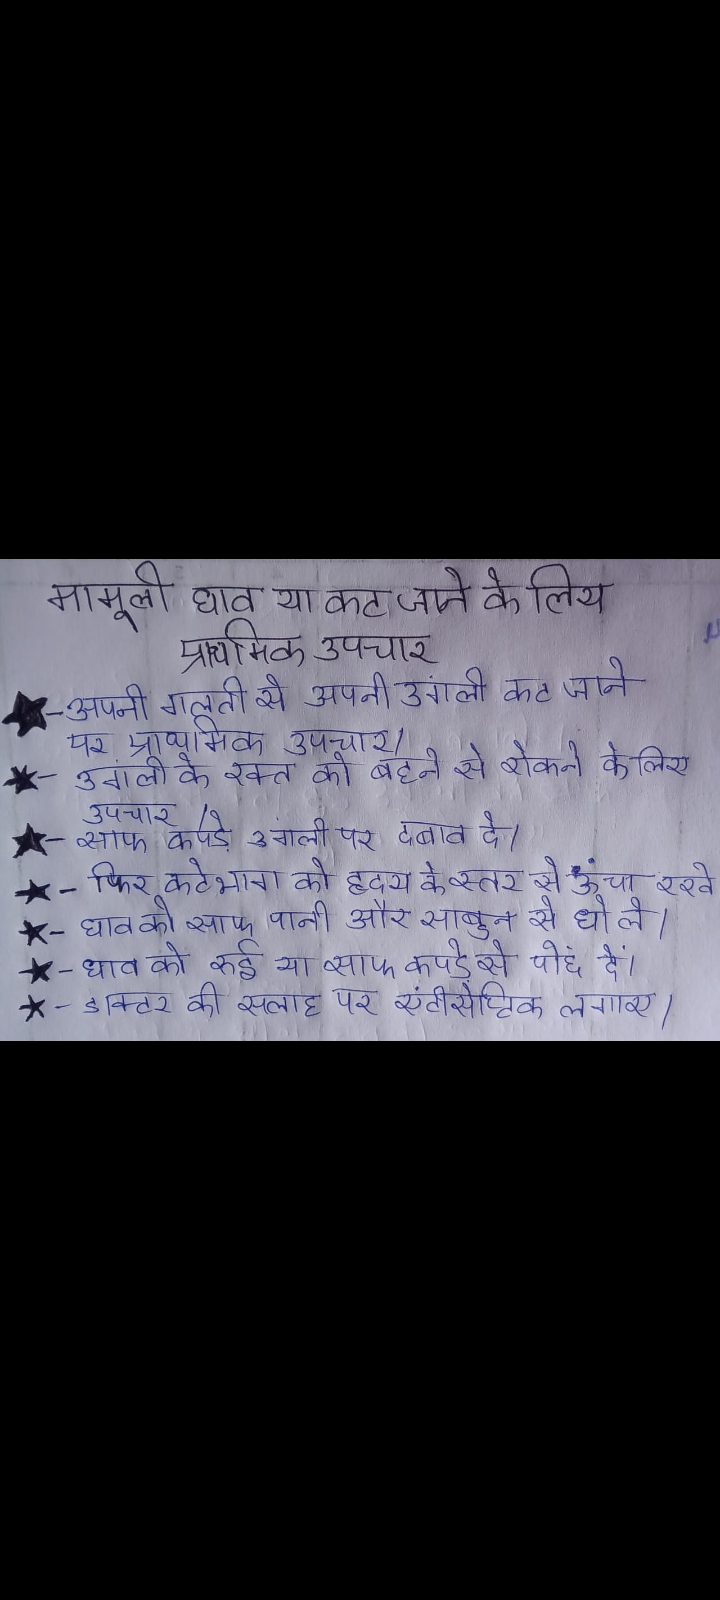 मामूली घाव या कट जाने के लिय
प्राथमिक उपचार
★-अपनी गलती से अपनी उंगली कट जाने
पर प्राथमिक उपचार/
★- उंगली के रक्त को बहने से रोकने के लिए
उपचार /
★- साफ कपड़े उंगली पर दबाव दे/
★- फिर कटेभाग को हृदय के स्तर से ऊंचा रखे
★- घाव को साफ पानी और साबुन से धो ले /
★- घाव को रुई या साफ कपड़े से पोछं दें।
★- डाक्टर की सलाह पर एंटीसेप्टिक लगाए /